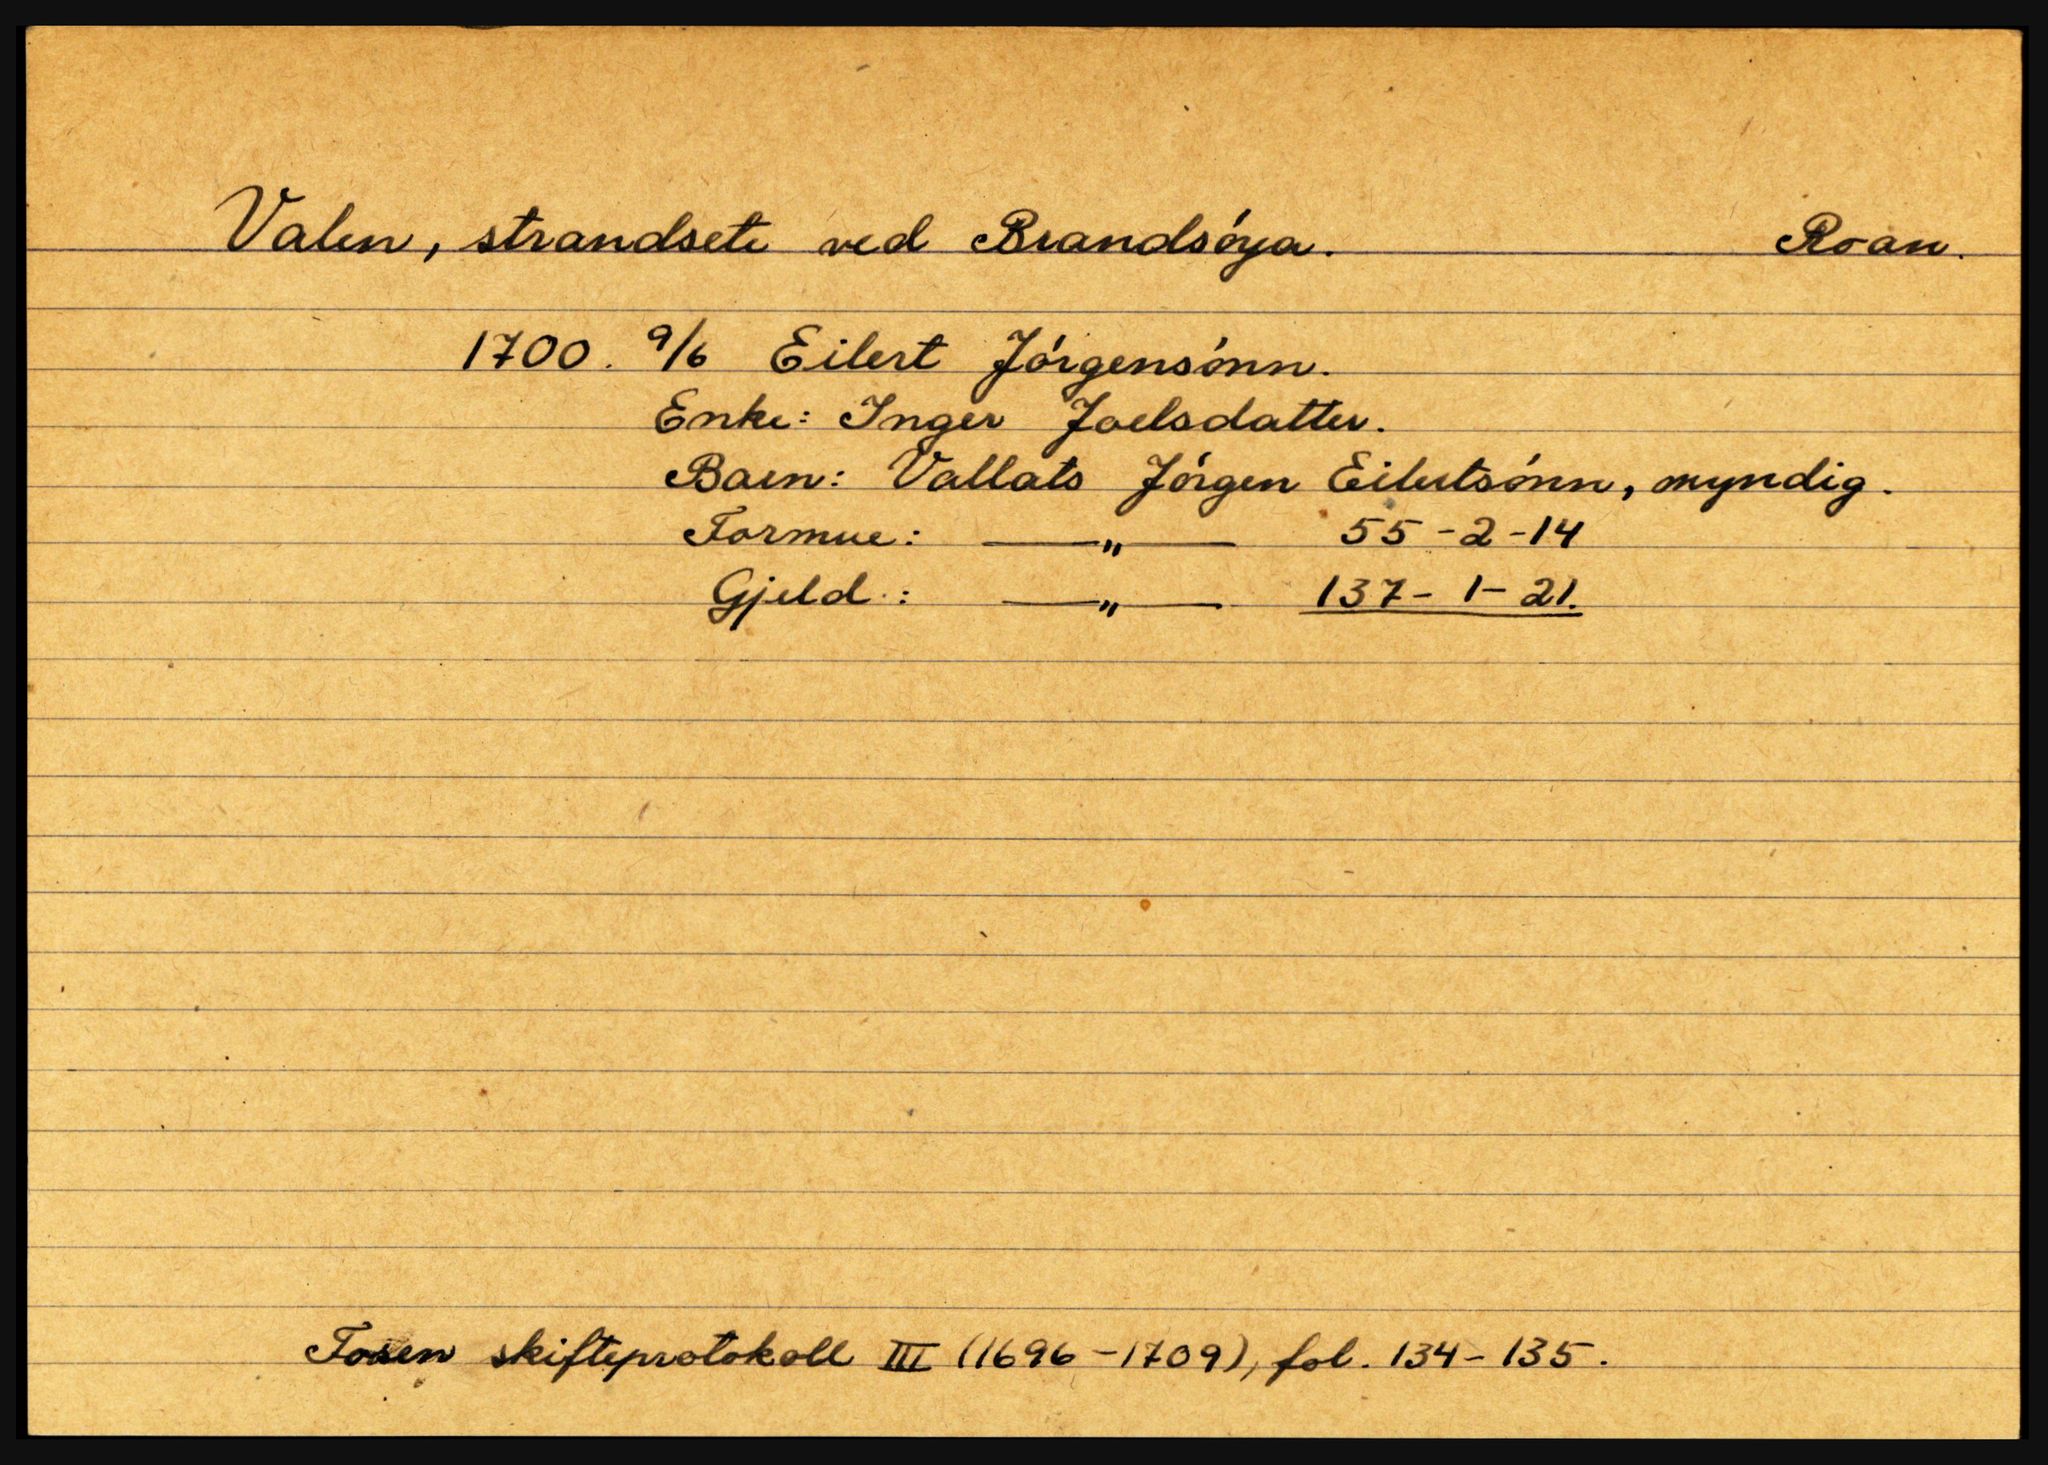 Valen, strandsete ved Brandsóya. Roan.
1700. 9/6 Eilert Jórgensónn.
Enke: Inger Joelsdatter.
Barn: Vallats Jórgen Eilertsónn, myndig.
Formue: —„— 55-2-14
Gjeld: —„— 137-1-21.
Fosen skifteprotokoll III (1696-1709), fol. 134-135.